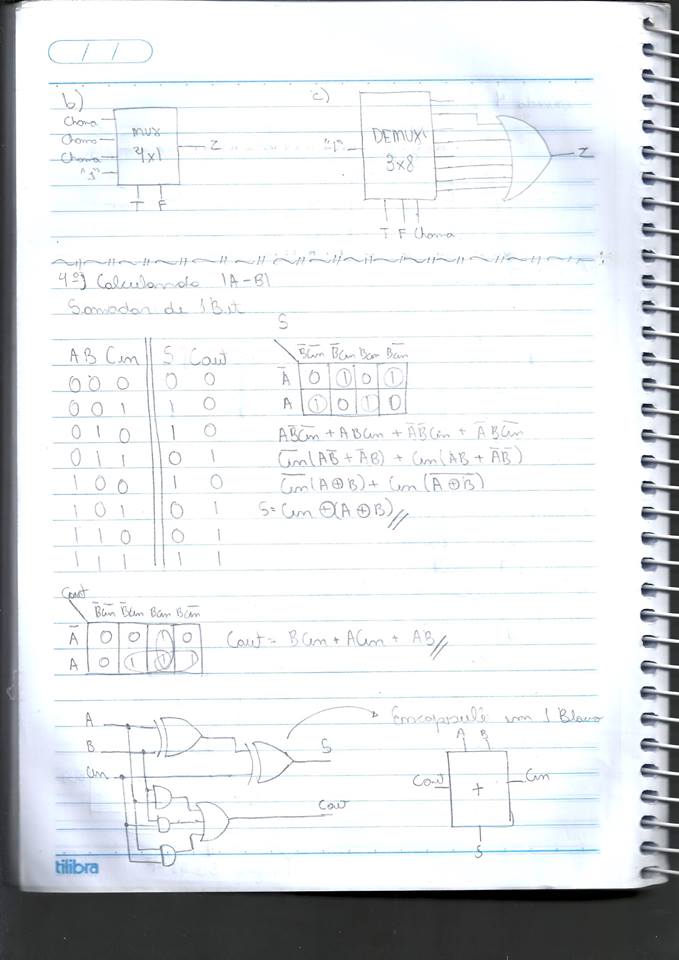 / /
b) c)
Chama
Chama
Chama
"1"
MUX
4x1
Z
T F
"1"
DEMUX
3x8
Z
T F Chama
4º) Calculando |A-B|
Somador de 1 Bit
S
A B Cin S Cout
0 0 0 0 0
0 0 1 1 0
0 1 0 1 0
0 1 1 0 1
1 0 0 1 0
1 0 1 0 1
1 1 0 0 1
1 1 1 1 1
B̅C̅i̅n̅ B̅Cin BCin BC̅i̅n̅
A̅ 0 1 0 1
A 1 0 1 0
AB̅C̅i̅n̅ + ABCin + A̅B̅Cin + A̅BC̅i̅n̅
C̅i̅n̅(AB̅ + A̅B) + Cin(AB + A̅B̅)
C̅i̅n̅(A⊕B) + Cin(A̅⊕̅B̅)
S = Cin ⊕ (A ⊕ B)//
Cout
B̅C̅i̅n̅ B̅Cin BCin BC̅i̅n̅
A̅ 0 0 1 0
A 0 1 1 1
Cout = BCin + ACin + AB//
A
B
Cin
S
Cout
Encapsulê em 1 Bloco
A B
Cout + Cin
S
tilibra